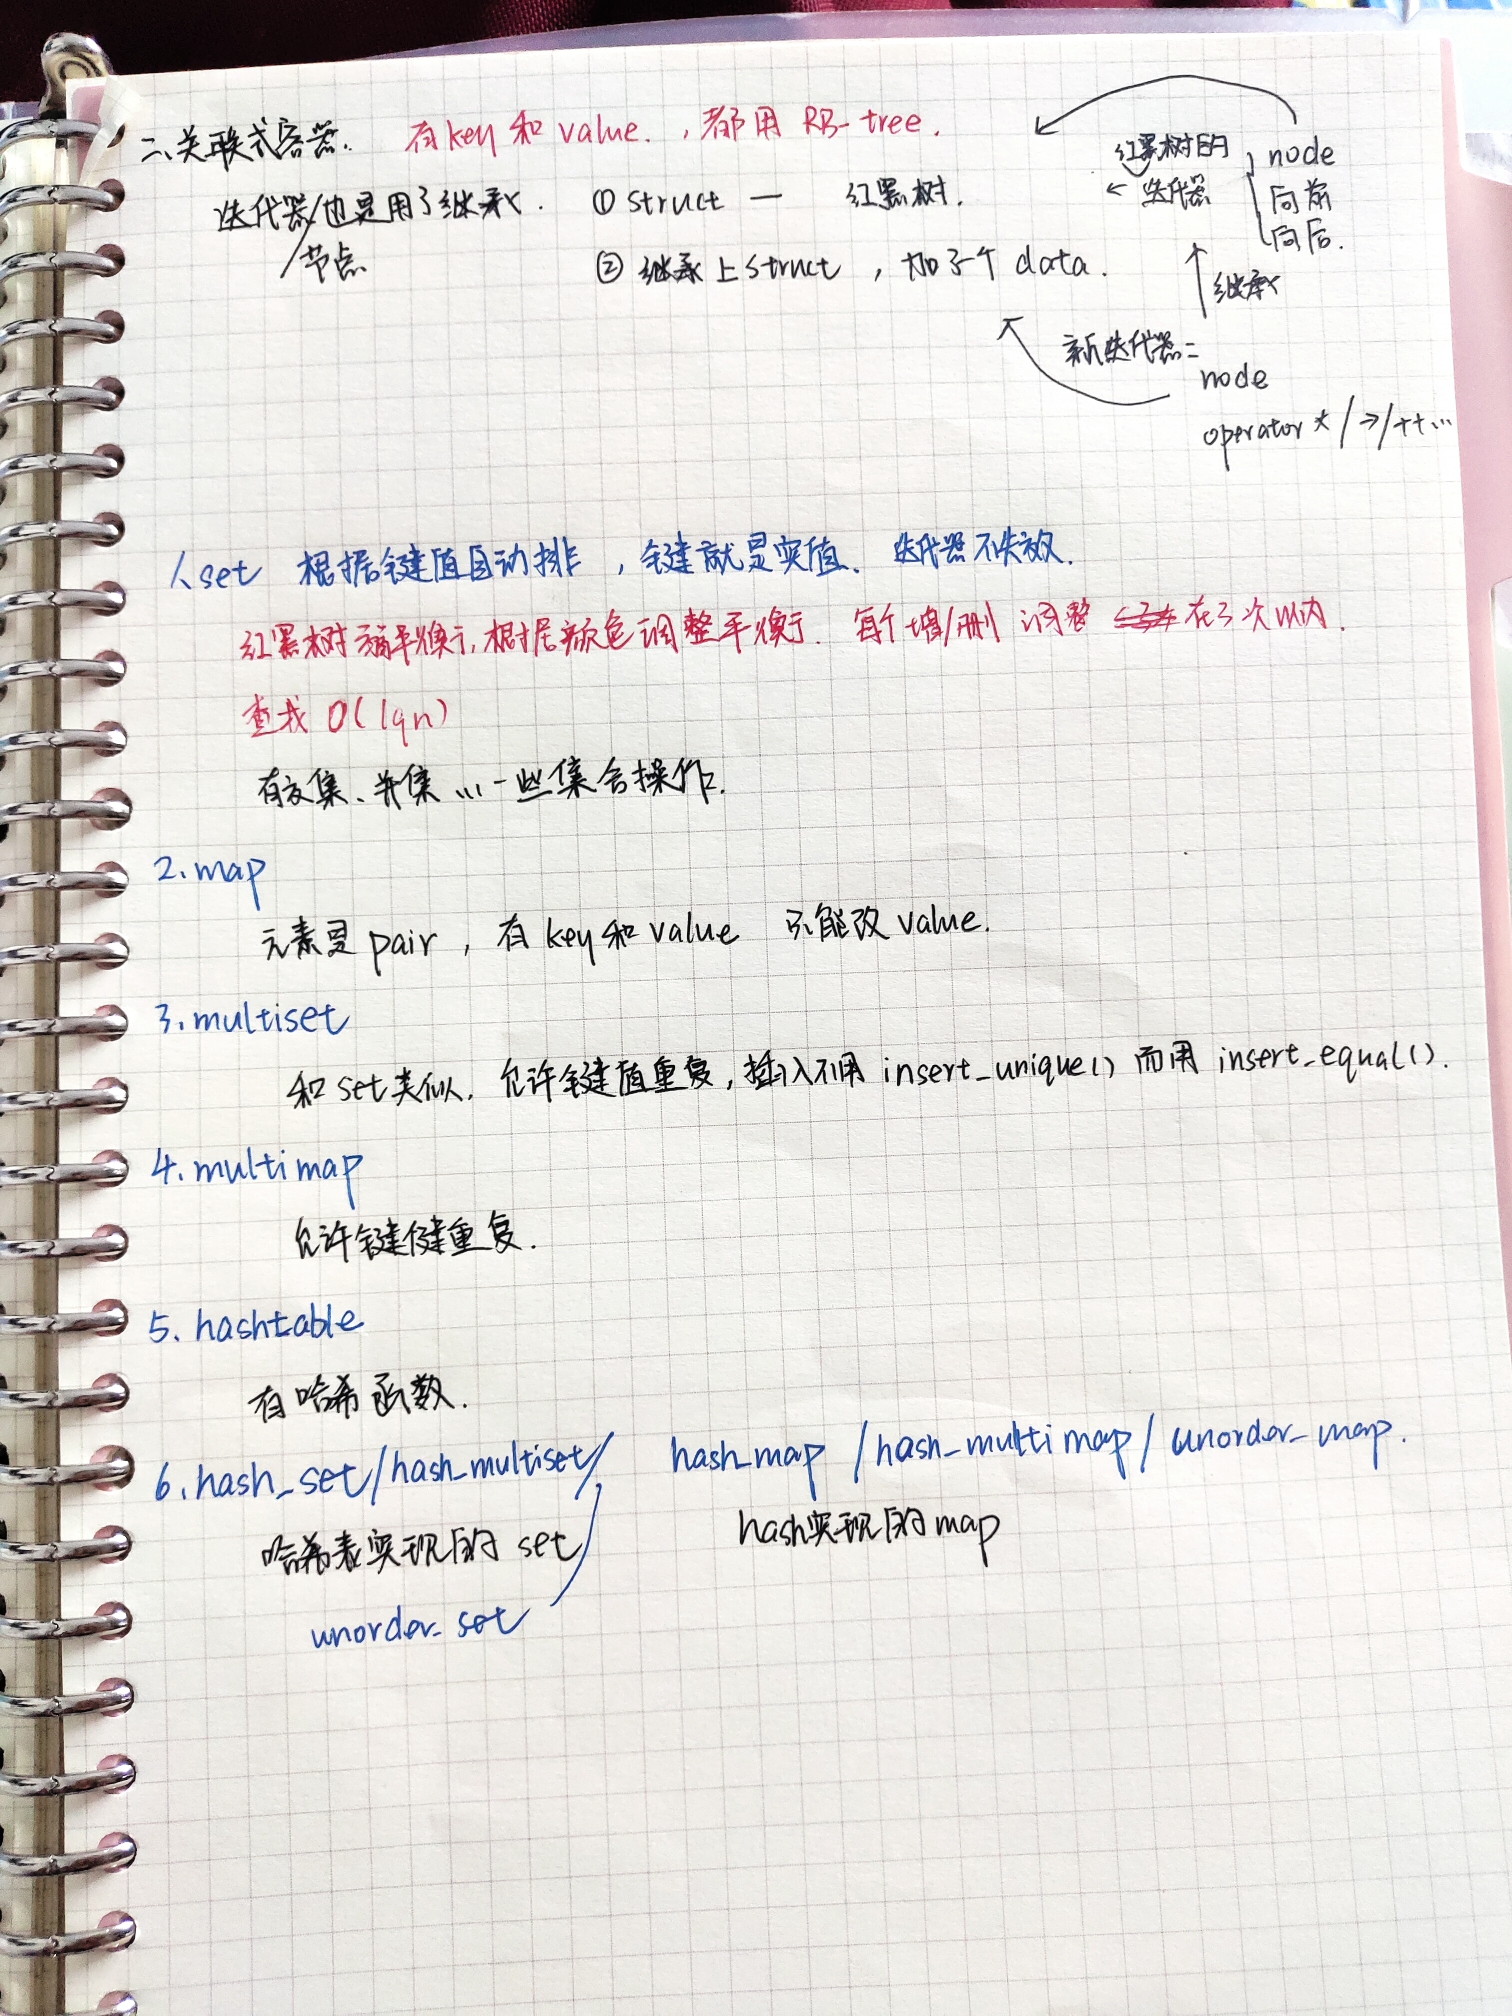 二、关联式容器. 有key和value.，都用RB-tree.
迭代器/节点 也是用了继承. ① struct — 红黑树.
② 继承上struct，加了个data.
红黑树的迭代器 node
向前
向后.
继承
新迭代器：
node
operator * / → / ++ ...
1. set 根据键值自动排，键就是实值. 迭代器不失效.
红黑树 弱平衡，根据颜色调整平衡. 每个增/删 调整 在3次以内.
查找 O(lgn)
有交集、并集 ... 一些集合操作.
2. map
元素是pair，有key和value 只能改value.
3. multiset
和set类似. 允许键值重复，插入不用 insert_unique() 而用 insert_equal().
4. multimap
允许键健重复.
5. hashtable
有哈希函数.
6. hash_set/hash_multiset/ hash_map /hash_multimap/ unorder_map.
哈希表实现的 set hash实现的map
unorder_set